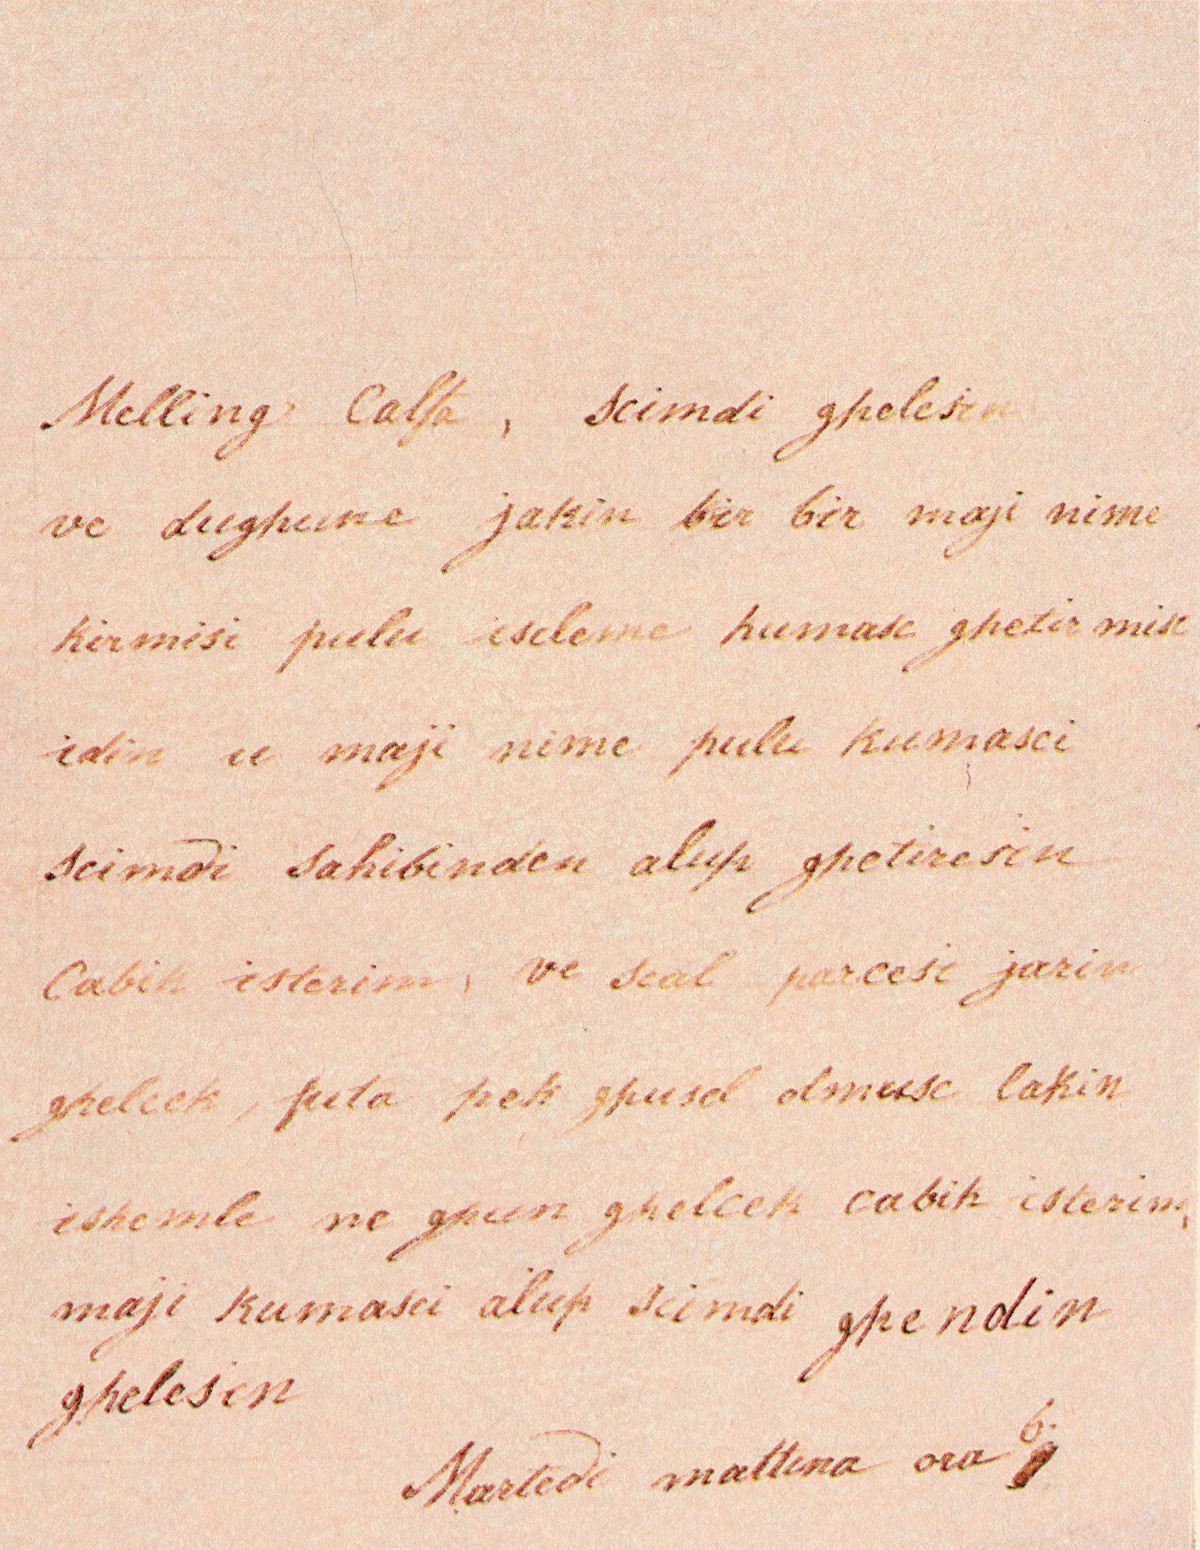 Melling Calfa, scimdi ghelesin
ve dughune jakin bir bir maji nime
kirmisi pulu iscleme kumasc ghetirmisc
idin u maji nime pulu kumasci
scimdi sahibinden alup ghetiresin
Cabik isterim, ve scal parcesi jarin
ghelcek, futa pek ghusel olmusc lakin
iskemle ne ghun ghelcek cabik isterim,
maji kumasci alup scimdi ghendin
ghelesin
Martedi mattina ora 6.